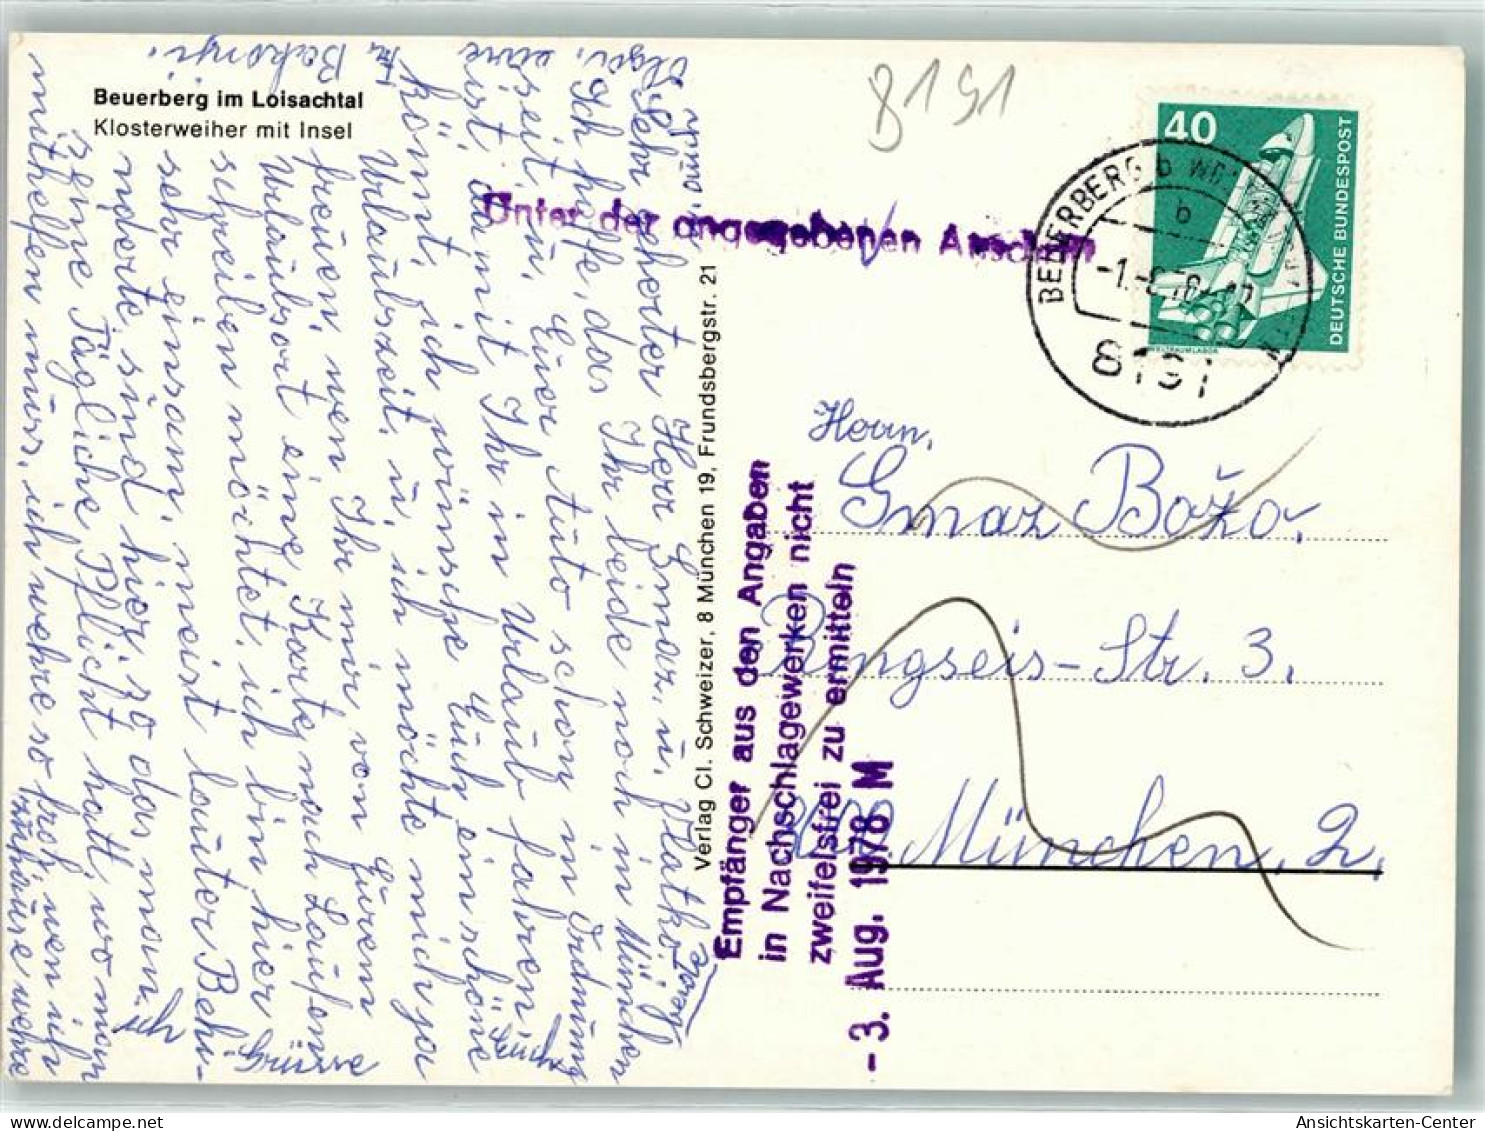 Beuerberg im Loisachtal
Klosterweiher mit Insel
8191
40
DEUTSCHE BUNDESPOST
WELTRAUMLABOR
BEUERBERG b
b
8191
Unter der angegebenen Anschrift
Verlag Cl. Schweizer, 8 München 19, Frundsbergstr. 21
Empfänger aus den Angaben
in Nachschlagewerken nicht
zweifelsfrei zu ermitteln
- 3. Aug. 1978 M
Herrn.
Gmaz Božo.
Ringseis-Str. 3.
München, 2.
Sehr geehrter Herr Gmaz, u. Vlatko.
Ich hoffe, das Ihr beide noch in München
seit, u. Euer Auto schon in Ordnung
ist, damit Ihr in Urlaub fahren,
könnt, ich wünsche Euch ein schöne
Urlaubszeit, u. ich möchte mich so
freuen wen Ihr mir von Eurem
Urlaubsort eine Karte nach Laufen
schreiben möchtet, ich bin hier
sehr einsam, meist lauter Behi-
nderte sind hier, so das man
seine Tägliche Pflicht hatt, wo man
mithelfen muss, ich wehre so froh wen ich
zuhause wehre
Grüsse
Euch
Bakonyi.
Ansichtskarten-Center